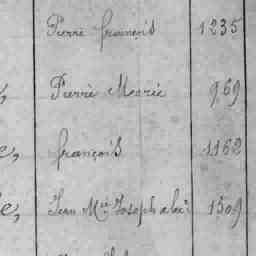 Pierre françois 1235
Pierre Marie 969
e, françois 1162
e, Jean Mie Joseph alexis 1509